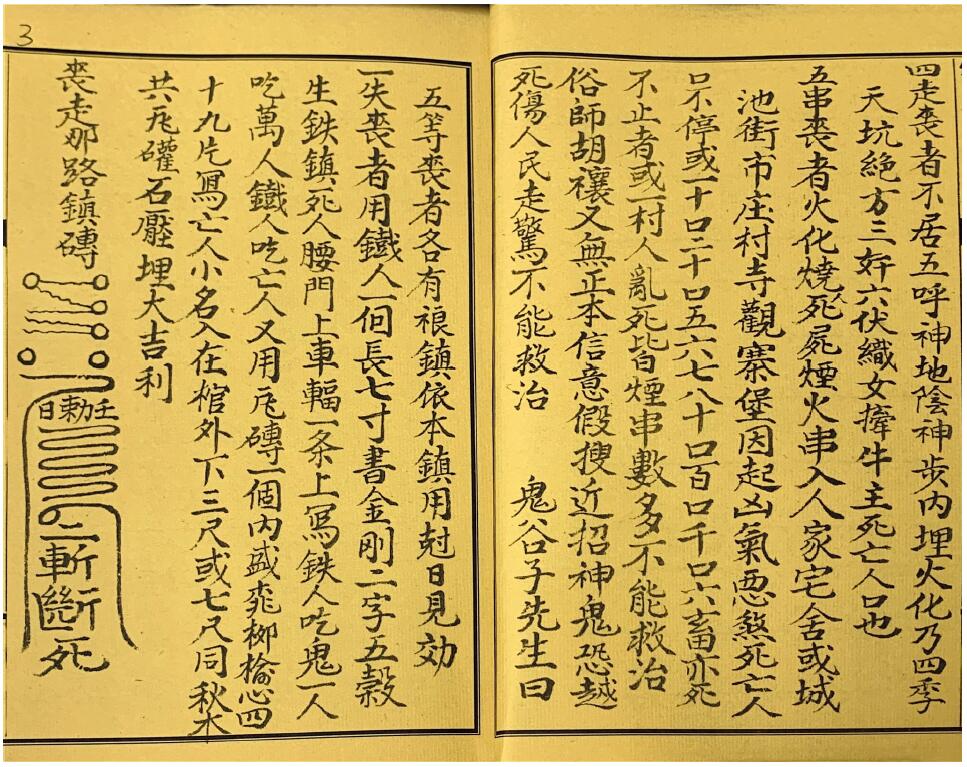 四走喪者不居五呼神地陰神步内埋火化乃四季
天坑絶方三奸六伏織女撁牛主死亡人口也
五串喪者火化燒死人屍煙火串入人家宅舍或城
池街市庄村寺觀寨堡因起凶氣悪煞死亡人
口不停或一十口二十口五六七八十口百口千口六畜亦死
不止者或一村人亂死皆煙串數多不能救治
俗師胡禳又無正本信意假搜近招神鬼恐越
死傷人民走驚不能救治 鬼谷子先生曰
3
五等喪者各有禳鎮依本鎮用尅日見効
一失喪者用鐵人一個長七寸書金剛二字五穀
生鉄鎮死人腰門上車輻一条上寫鉄人吃鬼一人
吃萬人鐵人吃亡人又用瓦磚一個内盛桃柳榆心四
十九片寫亡人小名入在棺外下三尺或七尺同秋水
共瓦礶石壓埋大吉利
喪走那路鎮磚
日敕令
二斬斷死